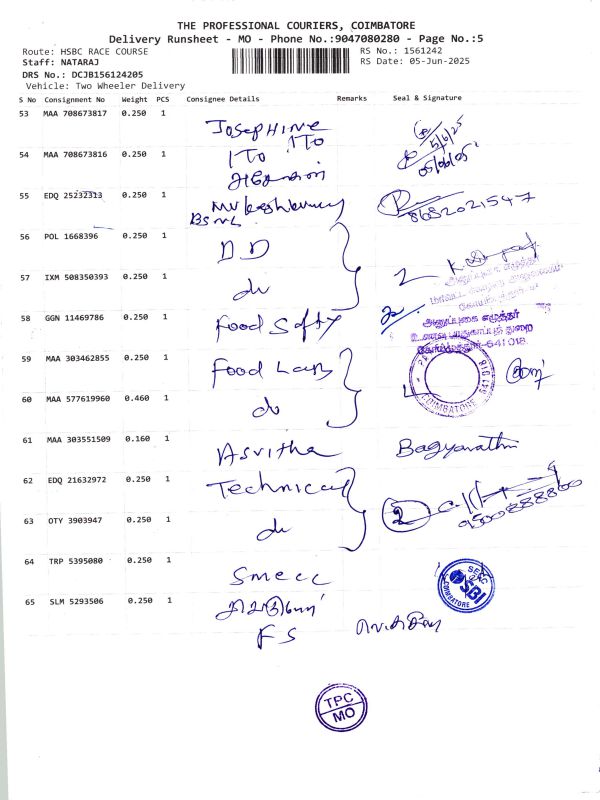 THE PROFESSIONAL COURIERS, COIMBATORE
Delivery Runsheet - MO - Phone No.:9047080280 - Page No.:5
Route: HSBC RACE COURSE
RS No.: 1561242
Staff: NATARAJ
RS Date: 05-Jun-2025
DRS No.: DCJB156124205
Vehicle: Two Wheeler Delivery
S No Consignment No Weight PCS Consignee Details Remarks Seal & Signature
53 MAA 708673817 0.250 1 Josephine ITO
5/6/25
54 MAA 708673816 0.250 1 ITO
05/06/05
55 EDQ 25232313 0.250 1
BSNL 8682021547
56 POL 1668396 0.250 1 DD
2
57 IXM 508350393 0.250 1 do
58 GGN 11469786 0.250 1 Food Softy
அனுப்புகை எழுத்தர்
உணவு பாதுகாப்புத் துறை
கோயம்புத்தூர்-641 018.
59 MAA 303462855 0.250 1 Food Lab
COIMBATORE 641 018
60 MAA 577619960 0.460 1 do
61 MAA 303551509 0.160 1 Asvitha Bagyavathi
62 EDQ 21632972 0.250 1 Technical
2
9500888800
63 OTY 3903947 0.250 1 do
64 TRP 5395080 0.250 1 Smecc
SBI
COIMBATORE
65 SLM 5293506 0.250 1
FS
TPC
MO